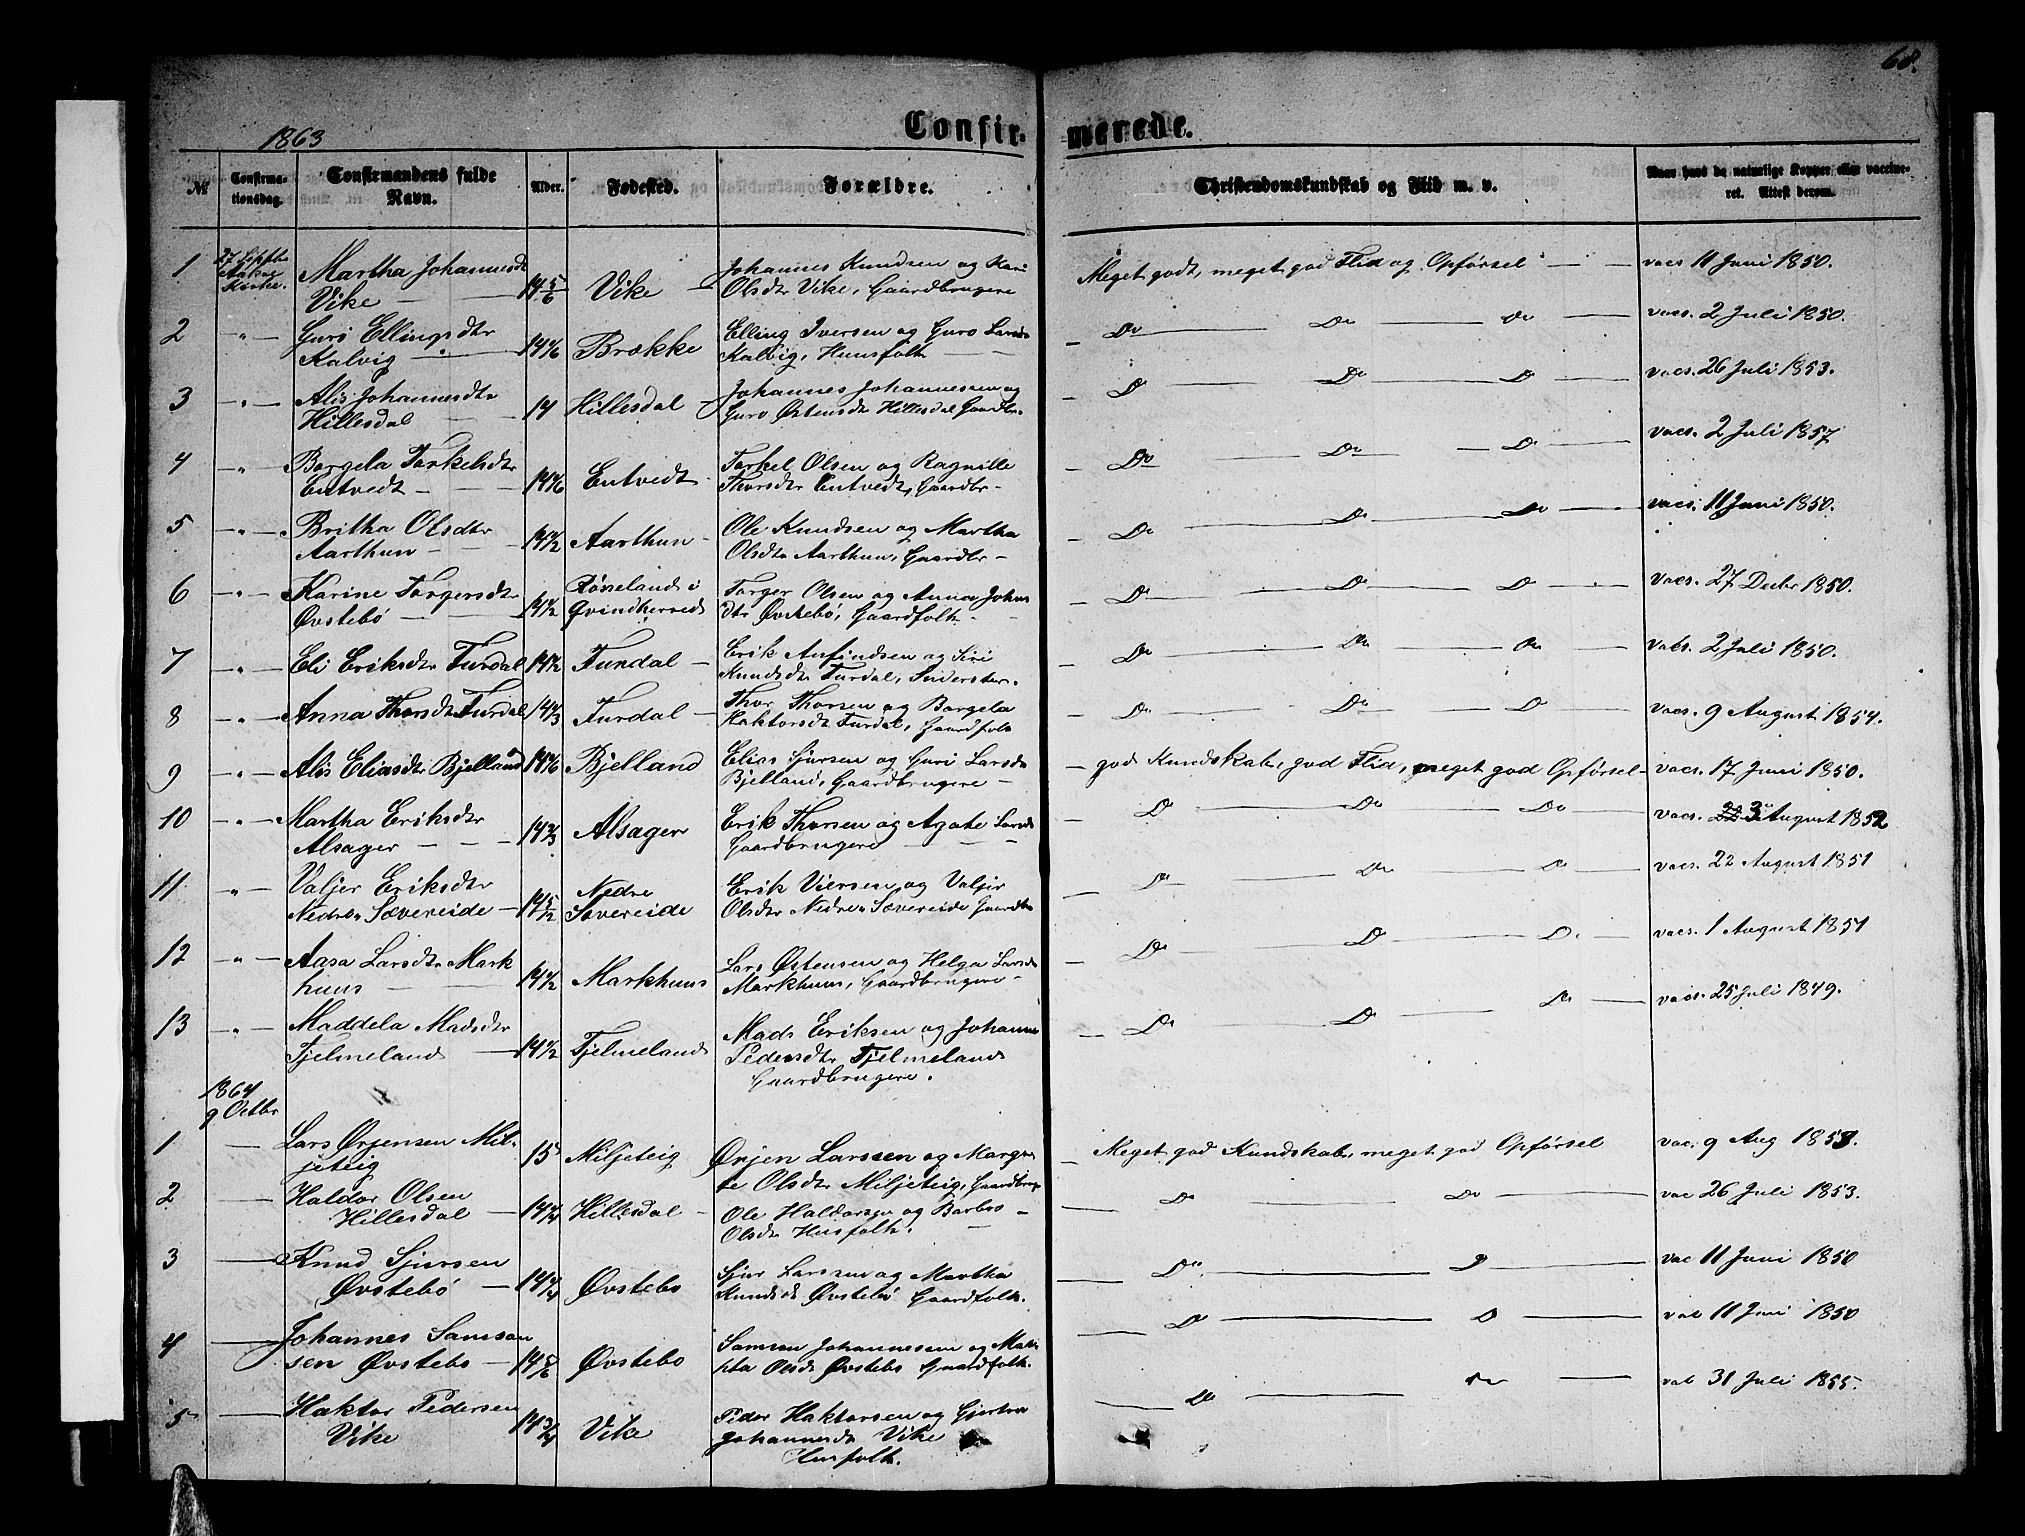 68.
1863
Confirmerede.
№ Confirmationsdag. Confirmandens fulde Navn. Alder. Fødested. Forældre. Christendomskundskab og Flid m. v. Naar havt de naturlige Kopper eller vaccineret. Attest derom.
1 27 Septbr Aakre Kirke. Martha Johannesdtr Vike 14 5/6 Vike Johannes Knudsen og Kari Olsdtr Vike, Gaardbrugere Meget godt, meget god Flid og Opførsel vacs 11 Juni 1850.
2 " Guro Ellingsdtr Kalvig 14 1/6 Brække Elling Iversen og Guro Larsdtr Kalvig, Huusfolk Do Do Do vacs. 2 Juli 1850.
3 " Alis Johannesdtr Hillesdal 14 Hillesdal Johannes Johannessen og Guro Østensdtr Hillesdal Gaardbr. Do Do Do vacs. 26 Juli 1853.
4 " Borgela Torkelsdtr Entvedt 14 1/6 Entvedt Torkel Olsen og Ragnille Thorsdtr Entvedt, Gaardbr Do Do Do vacs. 2 Juli 1857
5 " Britha Olsdtr Aarthun 14 1/2 Aarthun Ole Knudsen og Martha Olsdtr Aarthun, Gaardbr Do Do Do vacs. 11 Juni 1850.
6 " Karine Torgersdtr Øvstebö 14 1/2 Røneland i Qvindherred Torger Olsen og Anna Johns dtr Øvstebö, Gaardfolk Do Do Do vacs. 27 Decbr 1850.
7 " Eli Eriksdtr Furdal 14 1/2 Furdal Erik Anfindsen og Siri Knudsdtr Furdal, Inderster. Do Do Do vacs. 2 Juli 1850.
8 " Anna Thorsdtr Furdal 14 1/3 Furdal Thor Thorsen og Borgela Haktorsdt Furdal, Gaardfolk Do Do Do vacs. 9 August 1854.
9 " Alis Eliasdtr Bjelland 14 1/6 Bjelland Elias Sjursen og Guri Larsdtr Bjelland, Gaardbrugere god Kundskab, god Flid, meget god Opførsel vacs. 17 Juni 1850.
10 " Martha Eriksdtr Alsager 14 2/3 Alsager Erik Thorsen og Agate Larsdtr Gaardbrugere Do Do Do vacs. 3 August 1852
11 " Valjer Eriksdtr Nedre Sævereide 14 5/12 Nedre Sævereide Erik Viersen og Valjer Olsdtr Nedre Sævereide Gaardbr Do Do Do vacs. 22 August 1851
12 " Aasa Larsdtr Markhuus 14 1/2 Markhuus Lars Østensen og Helga Larsdtr Markhuus, Gaardbrugere Do Do Do. vacs. 1 August 1851
13 " Maddela Madsdtr Fjelmeland 14 1/2 Fjelmeland Mads Eriksen og Johanne Pedersdtr Fjelmeland Gaardbrugere. Do Do Do vacs. 25 Juli 1849.
1864
9 Octbr
1 Lars Ørjensen Miljeteig 15 Miljeteig Ørjen Larssen og Margrete Olsdtr Miljeteig, Gaardbruge Meget god Kundskab, meget god Opførsel vac. 9 Aug 1853.
2 Haldor Olsen Hillesdal 14 1/4 Hillesdal Ole Haldorsen og Barbro Olsdtr Husfolk. Do Do vac 26 Juli 1853.
3 Knud Sjursen Øvstebö 14 1/4 Øvstebo Sjur Larssen og Martha Knudsdt Øvstebö Gaardfolk. Do Do vac 11 Juni 1850
4 Johannes Samsonsen Øvstebo 14 5/6 Øvstebo Samson Johannesen og Olsdt Øvstebo Gaardfolk. Do Do vac 11 Juni 1850
5 Haktor Pedersen Vike 14 3/4 Vike Peder Haktorsen og Gjertru Johannesdt Vike Husfolk. Do Do vac 31 Juli 1855.